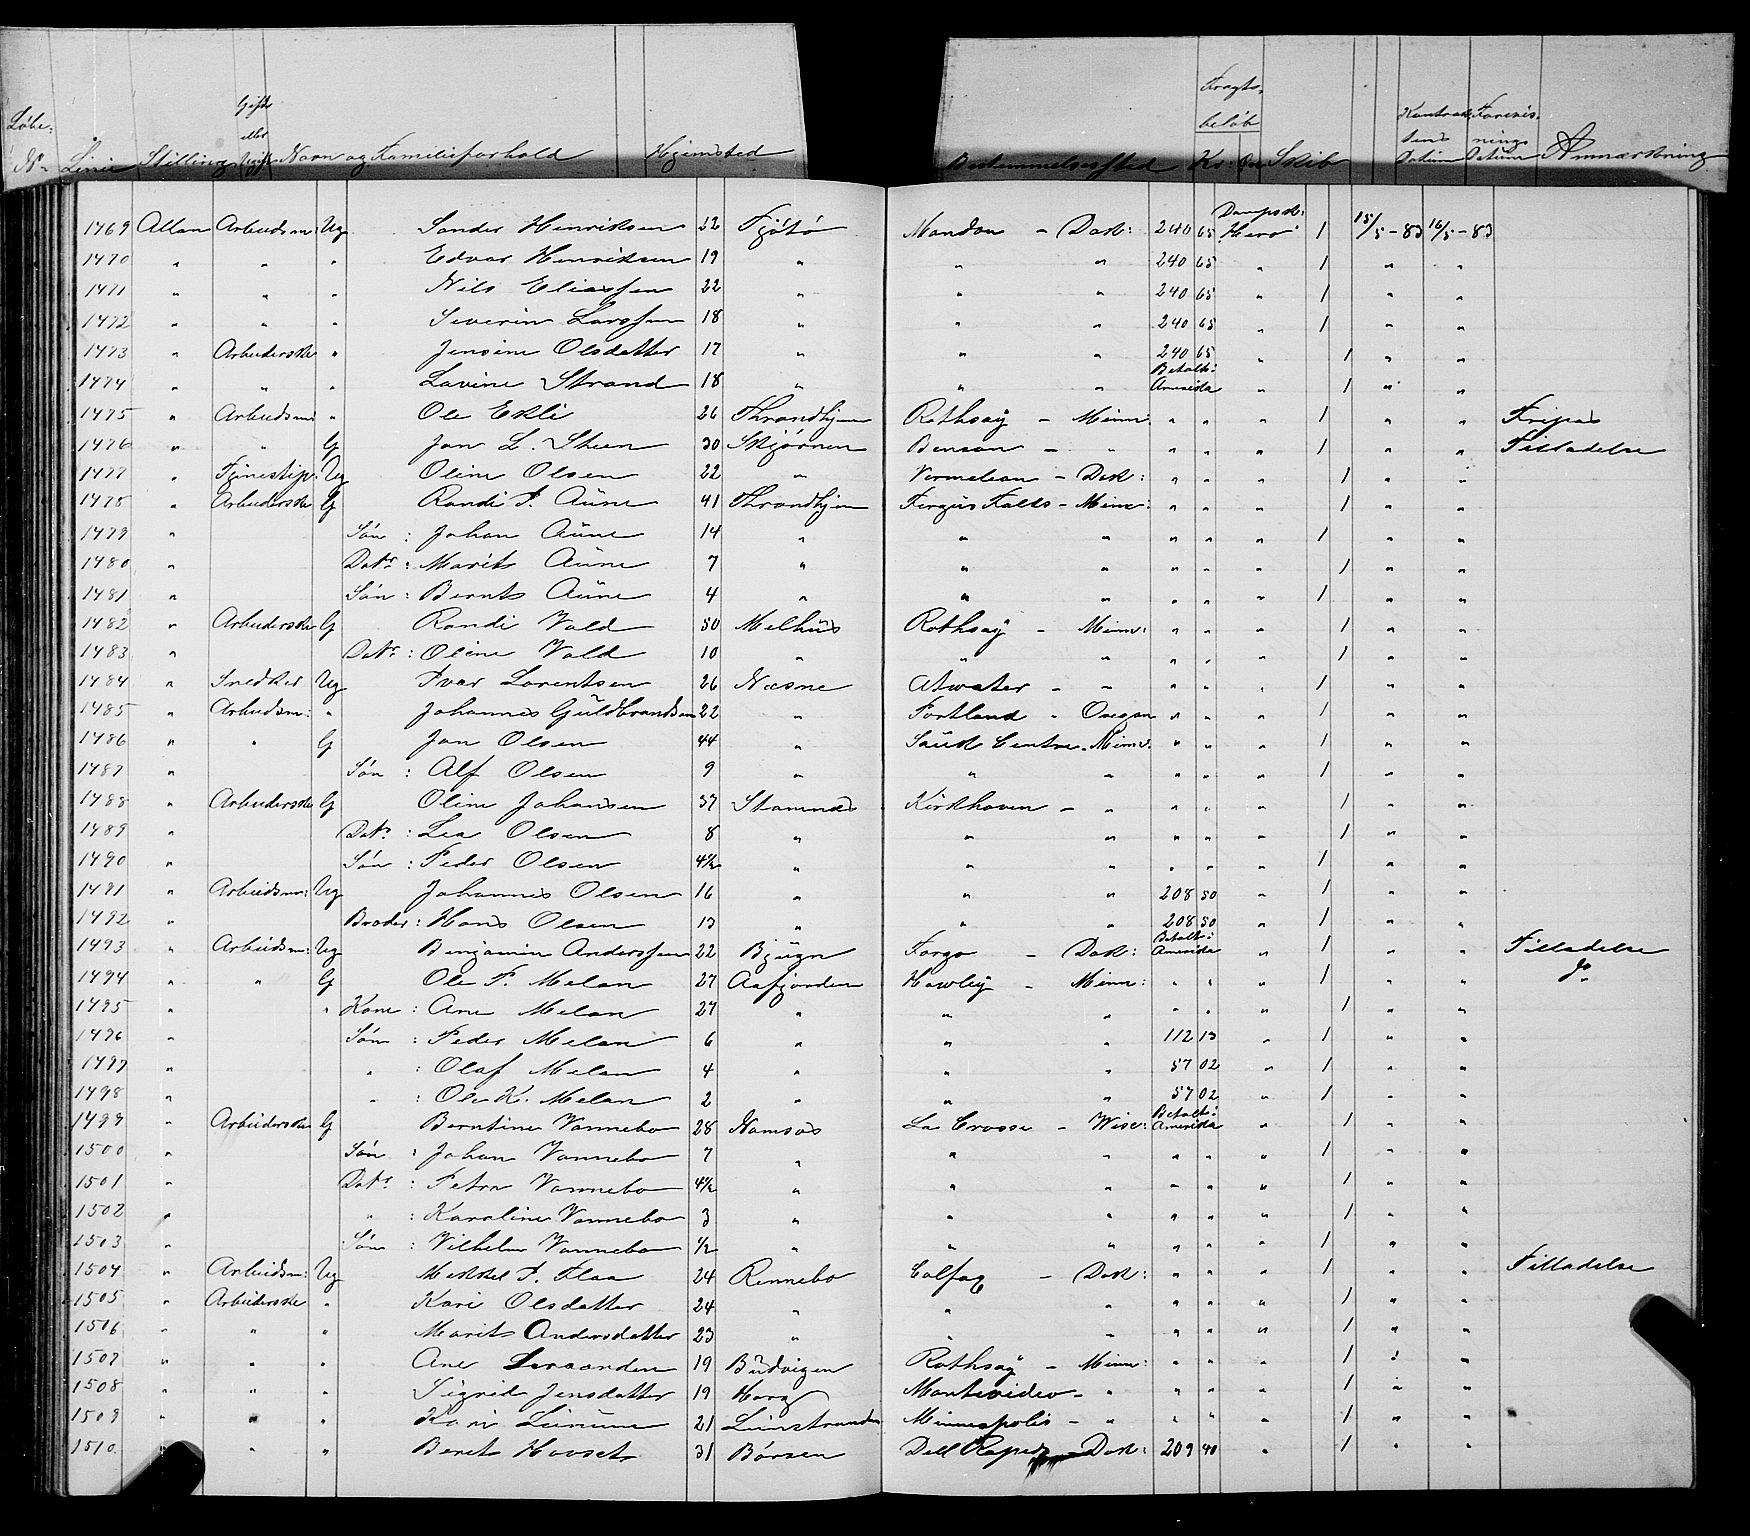 Løbe- Gift Fragt-
eller beløb Kontrak- Forevis-
No Linie Stilling Ugift Navn og Familieforhold Hjemsted Bestemmelsessted Kr: Øre Skib tens Datum nings Datum Anmærkning
1469 Allan Arbeidsm: Ug Sander Henriksen 22 Fjøtø Mandan - Dak: 240 65 Dampsk: Hero 1 15/5-83 16/5-83
1470 " " " Edvar Henriksen 19 " " " 240 65 " 1 " "
1471 " " " Nils Eliassen 22 " " " 240 65 " 1 " "
1472 " " " Severin Larssen 18 " " " 240 65 " 1 " "
1473 " Arbeiderske " Jensine Olsdatter 17 " " " 240 65 " 1 " "
1474 " " " Lavine Strand 18 " " " Betalt: Amerika " 1 " "
1475 " Arbeidsm: " Ole Ekli 26 Throndhjem Rothsay - Minn: " " " 1 " " Fripas
1476 " " G Jon L. Steen 30 Skjørnen Benson - " " " " 1 " " Tilladelse
1477 " Tjenestep: Ug Oline Olsen 22 " Vermelean - Dak: " " " 1 " "
1478 " Arbeiderske G Randi P. Aüne 41 Throndhjem Fergus Falls - Minn: " " " 1 " "
1479 " Søn : Johan Aüne 14 " " " " " " 1 " "
1480 " Datr : Marit Aüne 7 " " " " " " 1 " "
1481 " Søn : Bernt Aüne 4 " " " " " " 1 " "
1482 " Arbeiderske G Randi Vold 50 Melhüs Rothsay - Minn: " " " 1 " "
1483 " Datr : Oline Vold 10 " " " " " " 1 " "
1484 " Snedker Ug Ivar Lorentsen 26 Næsne Atwater - " " " " 1 " "
1485 " Arbeidsm: " Johannes Güldbrandsen 22 " Portland - Oregon " " " 1 " "
1486 " " G Jon Olsen 44 " Saük Centre - Minn: " " " 1 " "
1487 " Søn : Alf Olsen 9 " " " " " " 1 " "
1488 " Arbeiderske G Oline Johansen 37 Stamnes Kirkhoven - " " " " 1 " "
1489 " Datr : Lea Olsen 8 " " " " " " 1 " "
1490 " Søn : Peder Olsen 4½ " " " " " " 1 " "
1491 " Arbeidsm: Ug Johannes Olsen 16 " " " 208 50 " 1 " "
1492 " Broder : Hans Olsen 13 " " " 208 50 " 1 " "
1493 " Arbeidsm: Ug Benjamin Anderssen 22 Bjügn Fargo - Dak: Betalt: Amerika " 1 " " Tilladelse
1494 " " G Ole P. Melan 27 Aafjorden Hawley - Minn: " " " 1 " " do
1495 " " Kone : Ane Melan 27 " " " " " " 1 " "
1496 " Søn : Peder Melan 6 " " " 112 13 " 1 " "
1497 " " : Olaf Melan 4 " " " 57 02 " 1 " "
1498 " " : Ole K. Melan 2 " " " 57 02 " 1 " "
1499 " Arbeiderske G Berntine Vannebo 28 Namsos La Crosse - Wisc: Betalt: Amerika " 1 " "
1500 " Søn : Johan Vannebo 7 " " " " " " 1 " "
1501 " Datr : Petra Vannebo 4½ " " " " " " 1 " "
1502 " " : Karoline Vannebo 3 " " " " " " 1 " "
1503 " Søn : Vilhelm Vannebo ½ " " " " " " 1 " "
1504 " Arbeidsm: Ug Mikkel P. Flaa 24 Rennebo Colfax - Dak: " " " 1 " " Tilladelse
1505 " Arbeiderske " Kari Olsdatter 24 " " " " " " 1 " "
1506 " " " Marit Andersdatter 23 " " " " " " 1 " "
1507 " " " Ane 19 Büdvigen Rothsay - Minn: " " " 1 " "
1508 " " " Sigrid Jensdatter 19 Horg Montevideo - " " " " 1 " "
1509 " " " Kari 21 Leinstranden Minneapolis - " " " " 1 " "
1510 " " " Beret Hovset 31 Børsen Dell Rapids - Dak: 209 40 " 1 " "